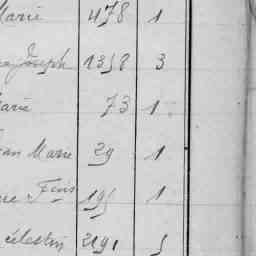 Marie 478 1
Joseph 1358 3
Marie 73 1
Jean Marie 29 1
Fçois 195 1
Célestin 2191 5